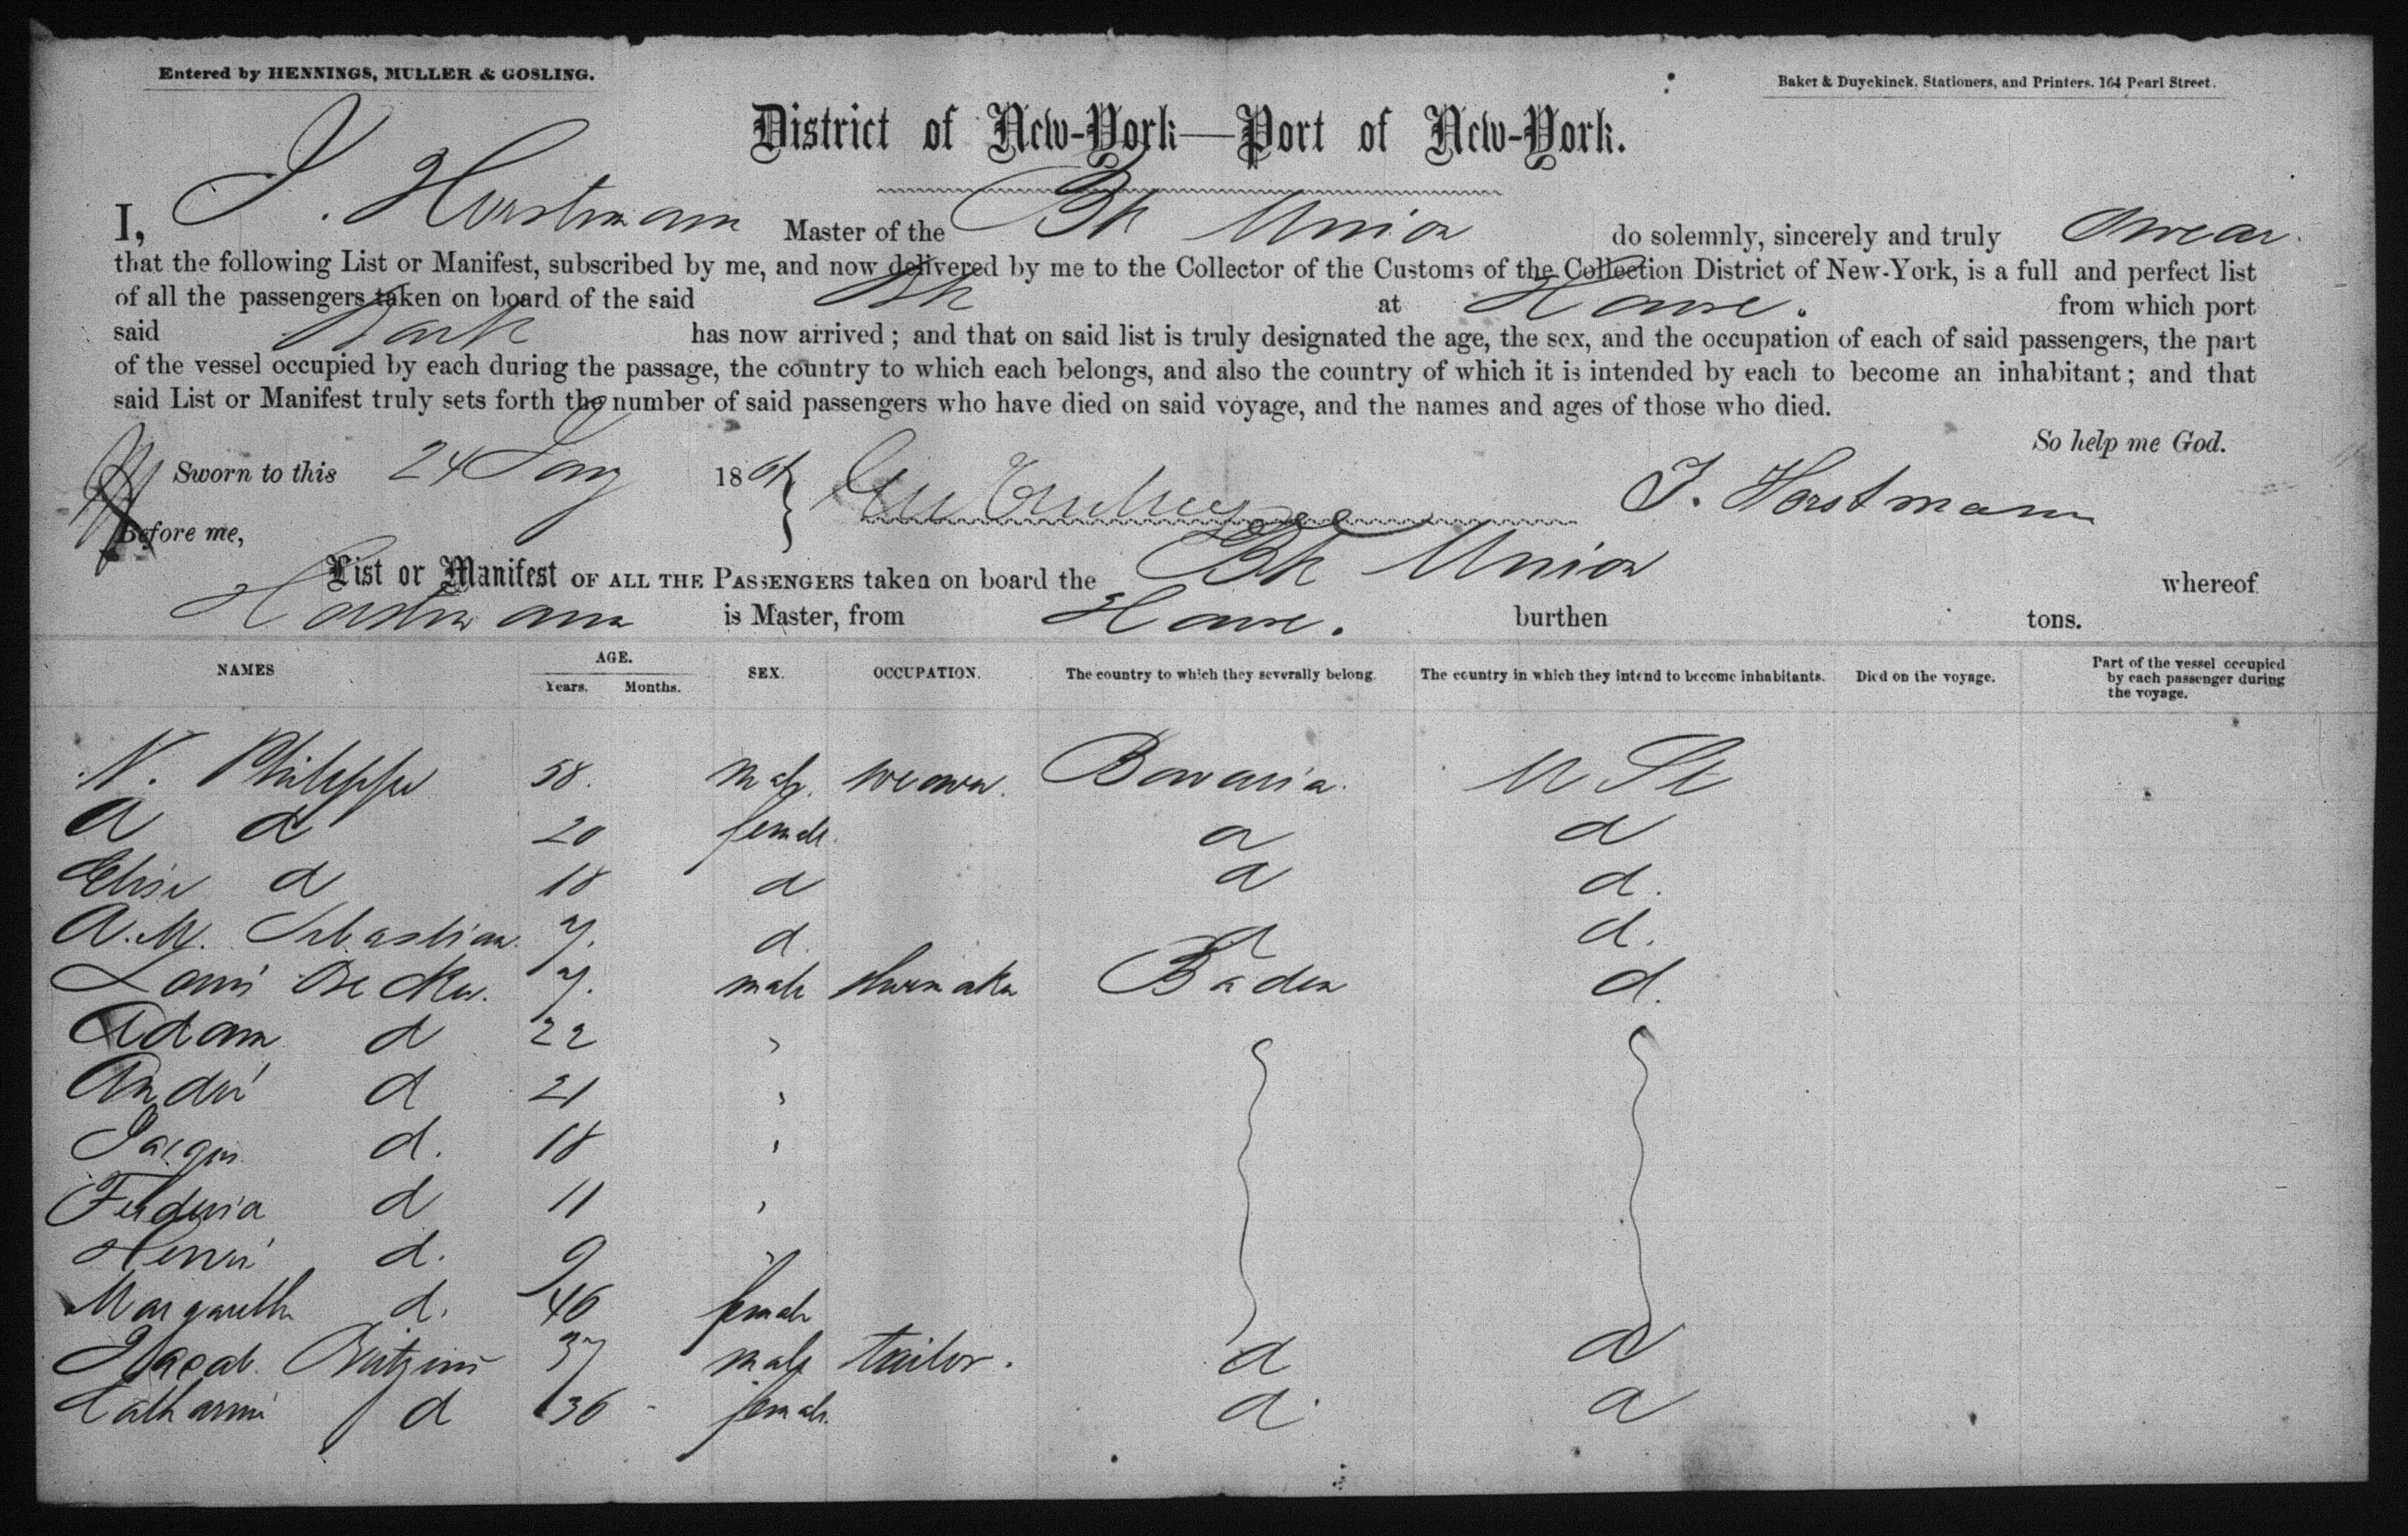 Entered by HENNINGS, MULLER & GOSLING.
Baker & Duyckinck, Stationers, and Printers. 164 Pearl Street.
District of New-York—Port of New-York.
I, J. Horstmann Master of the Bk Union do solemnly, sincerely and truly swear
that the following List or Manifest, subscribed by me, and now delivered by me to the Collector of the Customs of the Collection District of New-York, is a full and perfect list
of all the passengers taken on board of the said Bk at Havre. from which port
said Bark has now arrived; and that on said list is truly designated the age, the sex, and the occupation of each of said passengers, the part
of the vessel occupied by each during the passage, the country to which each belongs, and also the country of which it is intended by each to become an inhabitant; and that
said List or Manifest truly sets forth the number of said passengers who have died on said voyage, and the names and ages of those who died.
So help me God.
Sworn to this 24 186 J. Horstmann
Before me,
List or Manifest OF ALL THE PASSENGERS taken on board the Bk Union whereof
Horstmann is Master, from Havre. burthen tons.
NAMES AGE. Years. Months. SEX. OCCUPATION. The country to which they severally belong. The country in which they intend to become inhabitants. Died on the voyage. Part of the vessel occupied by each passenger during the voyage.
N. Philippe 58. male. weaver. Bavaria. U St
A d 20 female. d d
Elise d 18 d d d.
A. M. Sebastian 7. d. d d.
Louis Becker. 7. male shoemaker Baden d.
Adam d 22 "
André d 21 "
Jacques d. 18 "
d 11 "
Henri d. 9 "
Margareth d. 46 female
Jacob 37 male tailor. d d
Catharine d 36 female. d. d